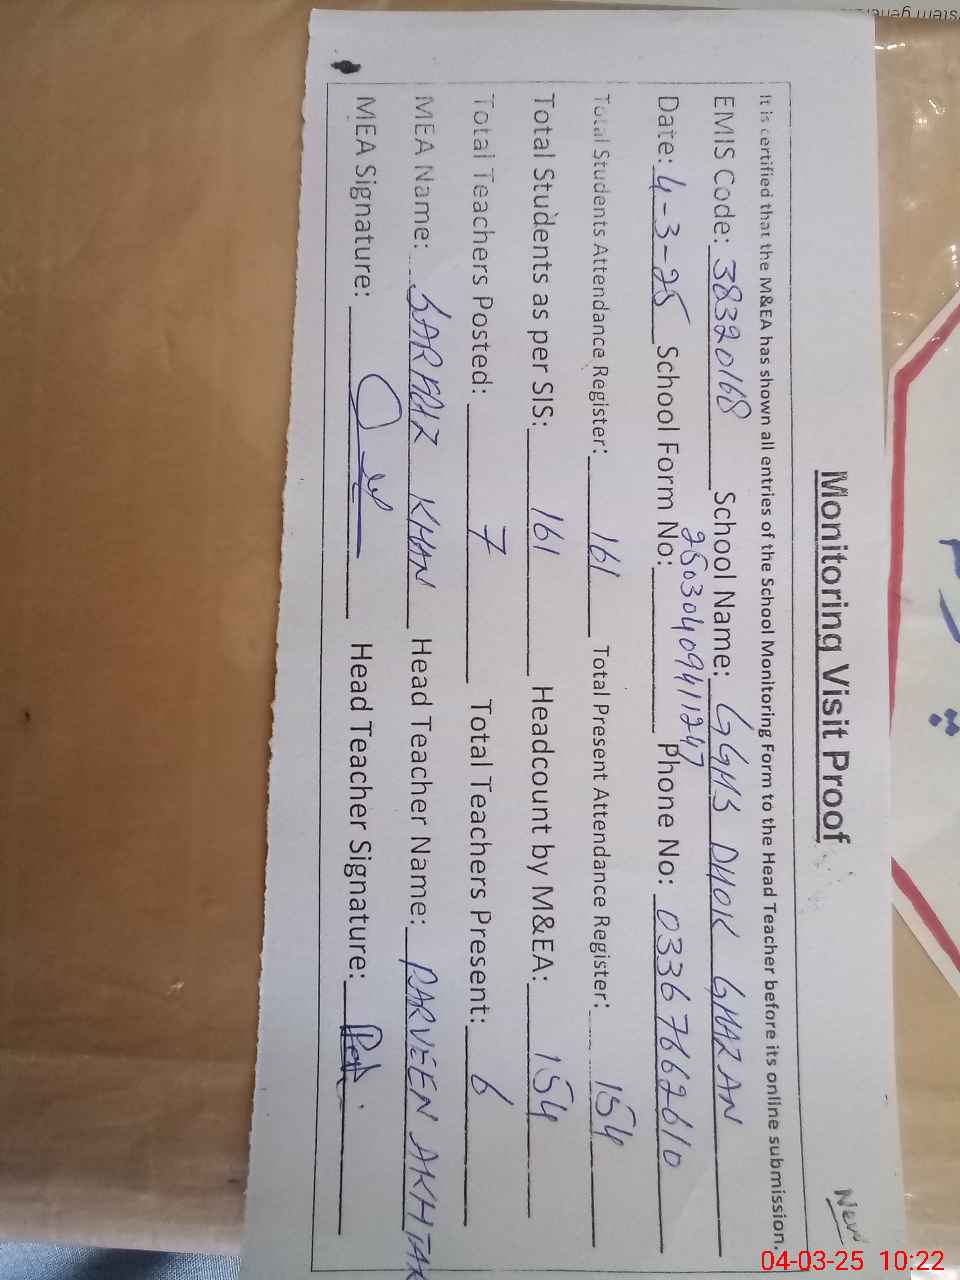 New
Monitoring Visit Proof
It is certified that the M&EA has shown all entries of the School Monitoring Form to the Head Teacher before its online submission.
EMIS Code: 38320168 School Name: GGHS DHOK GHAZAN
Date: 4-3-25 School Form No: 25030409411247 Phone No: 03367662610
Total Students Attendance Register: 161 Total Present Attendance Register: 154
Total Students as per SIS: 161 Headcount by M&EA: 154
Total Teachers Posted: 7 Total Teachers Present: 6
MEA Name: KHAN Head Teacher Name: PARVEEN AKHTAR
MEA Signature: Head Teacher Signature:
04-03-25 10:22